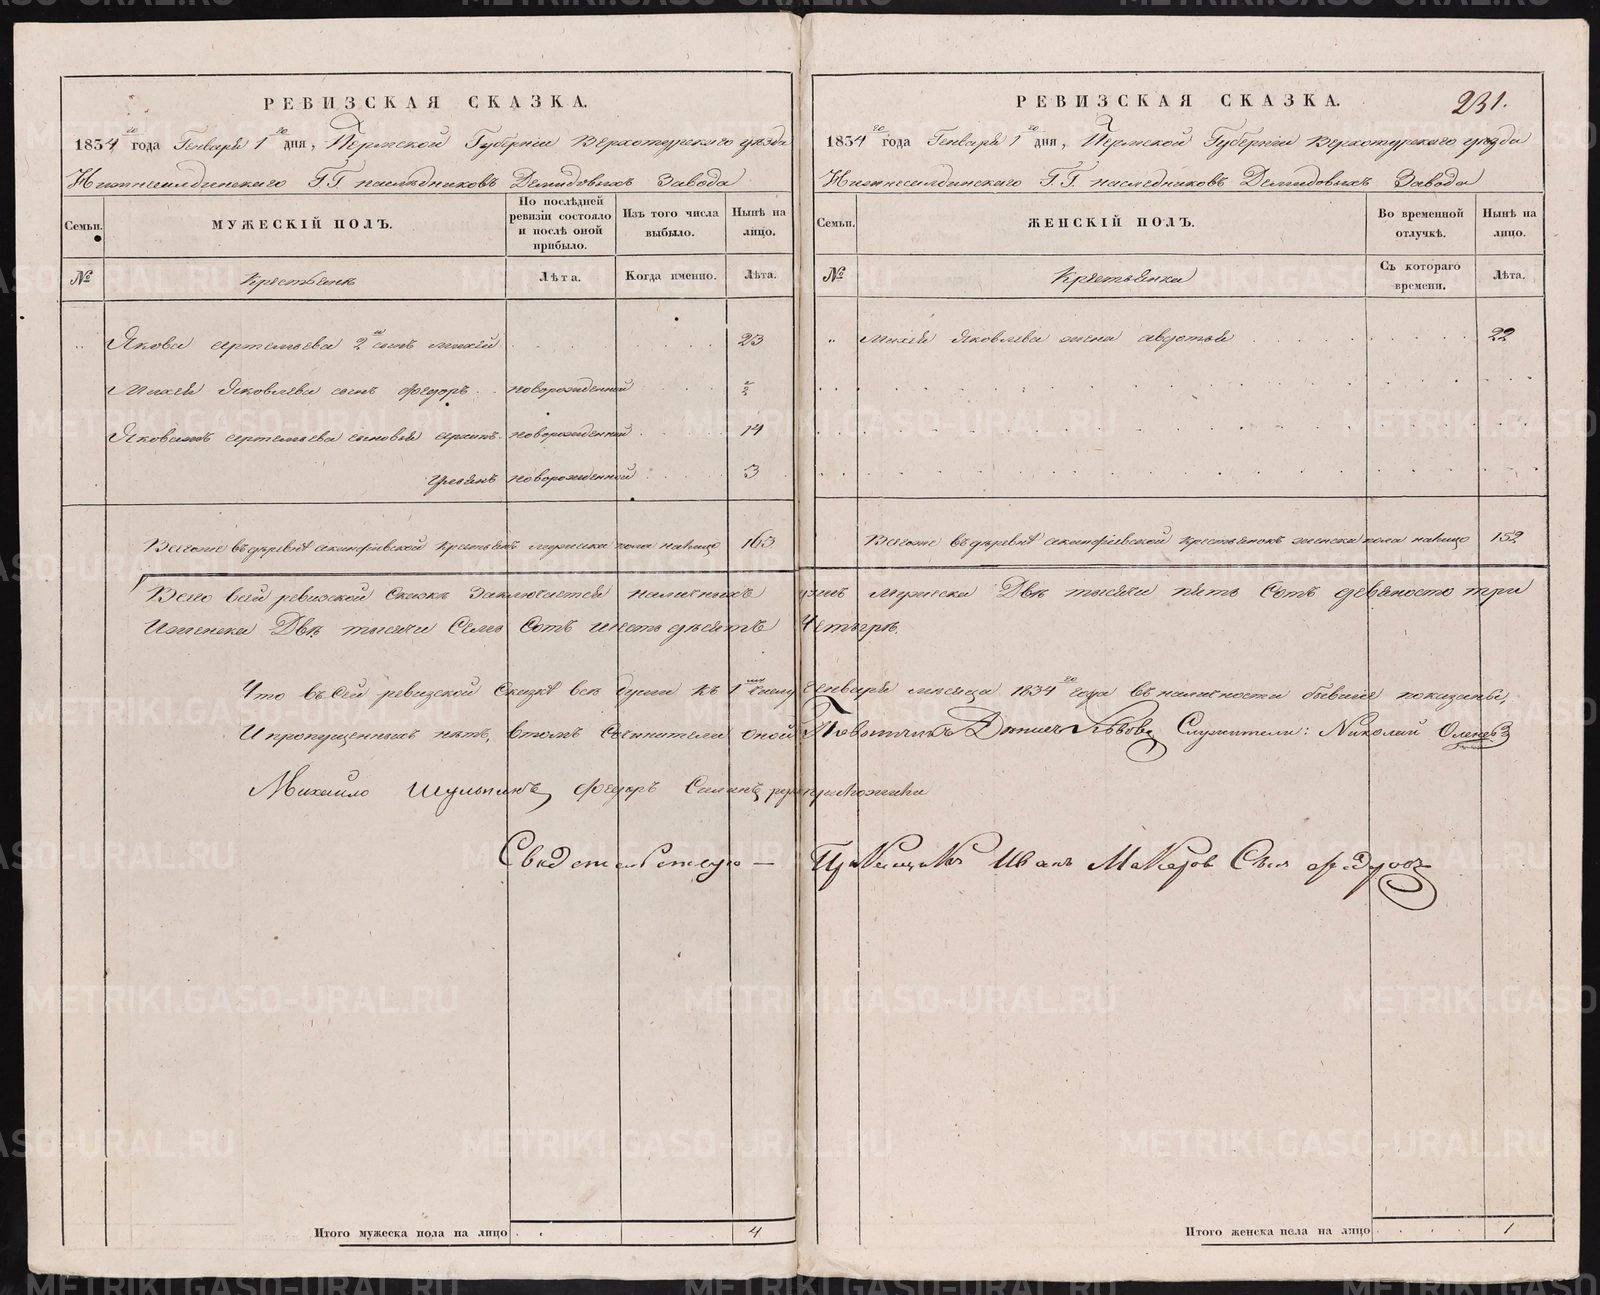 РЕВИЗСКАЯ СКАЗКА.
1834 го года Генваря 1 го дня, Пермской Губернiи Верхотурского уѣзда
Нижнесалдинскаго Г.Г. наслѣдниковъ Демидовыхъ Завода
Семьи.
МУЖЕСКIЙ ПОЛЪ.
По послѣдней ревизiи состояло и послѣ оной прибыло.
Изъ того числа выбыло.
Нынѣ на лицо.
№
Крестьянъ
Лѣта.
Когда именно.
Лѣта.
Якова Артемьева 2 й сынъ Михей 23
Михея Яковлева сынъ Федоръ новорожденной
Якова Артемьева сыновья новорожденной 14
новорожденной 3
въ деревнѣ Акинфiевской крестьянъ мужеска пола налицо 163
РЕВИЗСКАЯ СКАЗКА.
231.
1834 го года Генваря 1 го дня, Пермской Губернiи Верхотурского уѣзда
Нижнесалдинскаго Г.Г. наследниковъ Демидовыхъ Завода
Семьи.
ЖЕНСКIЙ ПОЛЪ.
Во временной отлучкѣ.
Нынѣ на лицо.
№
Крестьянка
Съ котораго времени.
Лѣта.
" Михея Яковлева жена Авдотья 22
въ деревнѣ Акинфiевской крестьянокъ женска пола налицо 152
Всего всей ревизской Сказкѣ Заключается наличныхъ душъ мужеска Двѣ тысячи пять Сотъ девяносто три
Иженска Двѣ тысячи Семь Сотъ шестьдесятъ Четыре.
Что въ Сей ревизской Сказкѣ всѣ души къ 1 му Генваря месяца 1834 го года въ наличности бывшiе показаны,
И пропущенныхъ нѣтъ, втомъ Сочинители оной Служители: Николай
Михайло Шульпинъ, Федоръ
Свидетельствую — Прикащикъ Иванъ Макаровъ Сынъ
Итого мужеска пола на лицо 4
Итого женска пола на лицо 1
METRIKI.GASO-URAL.RU